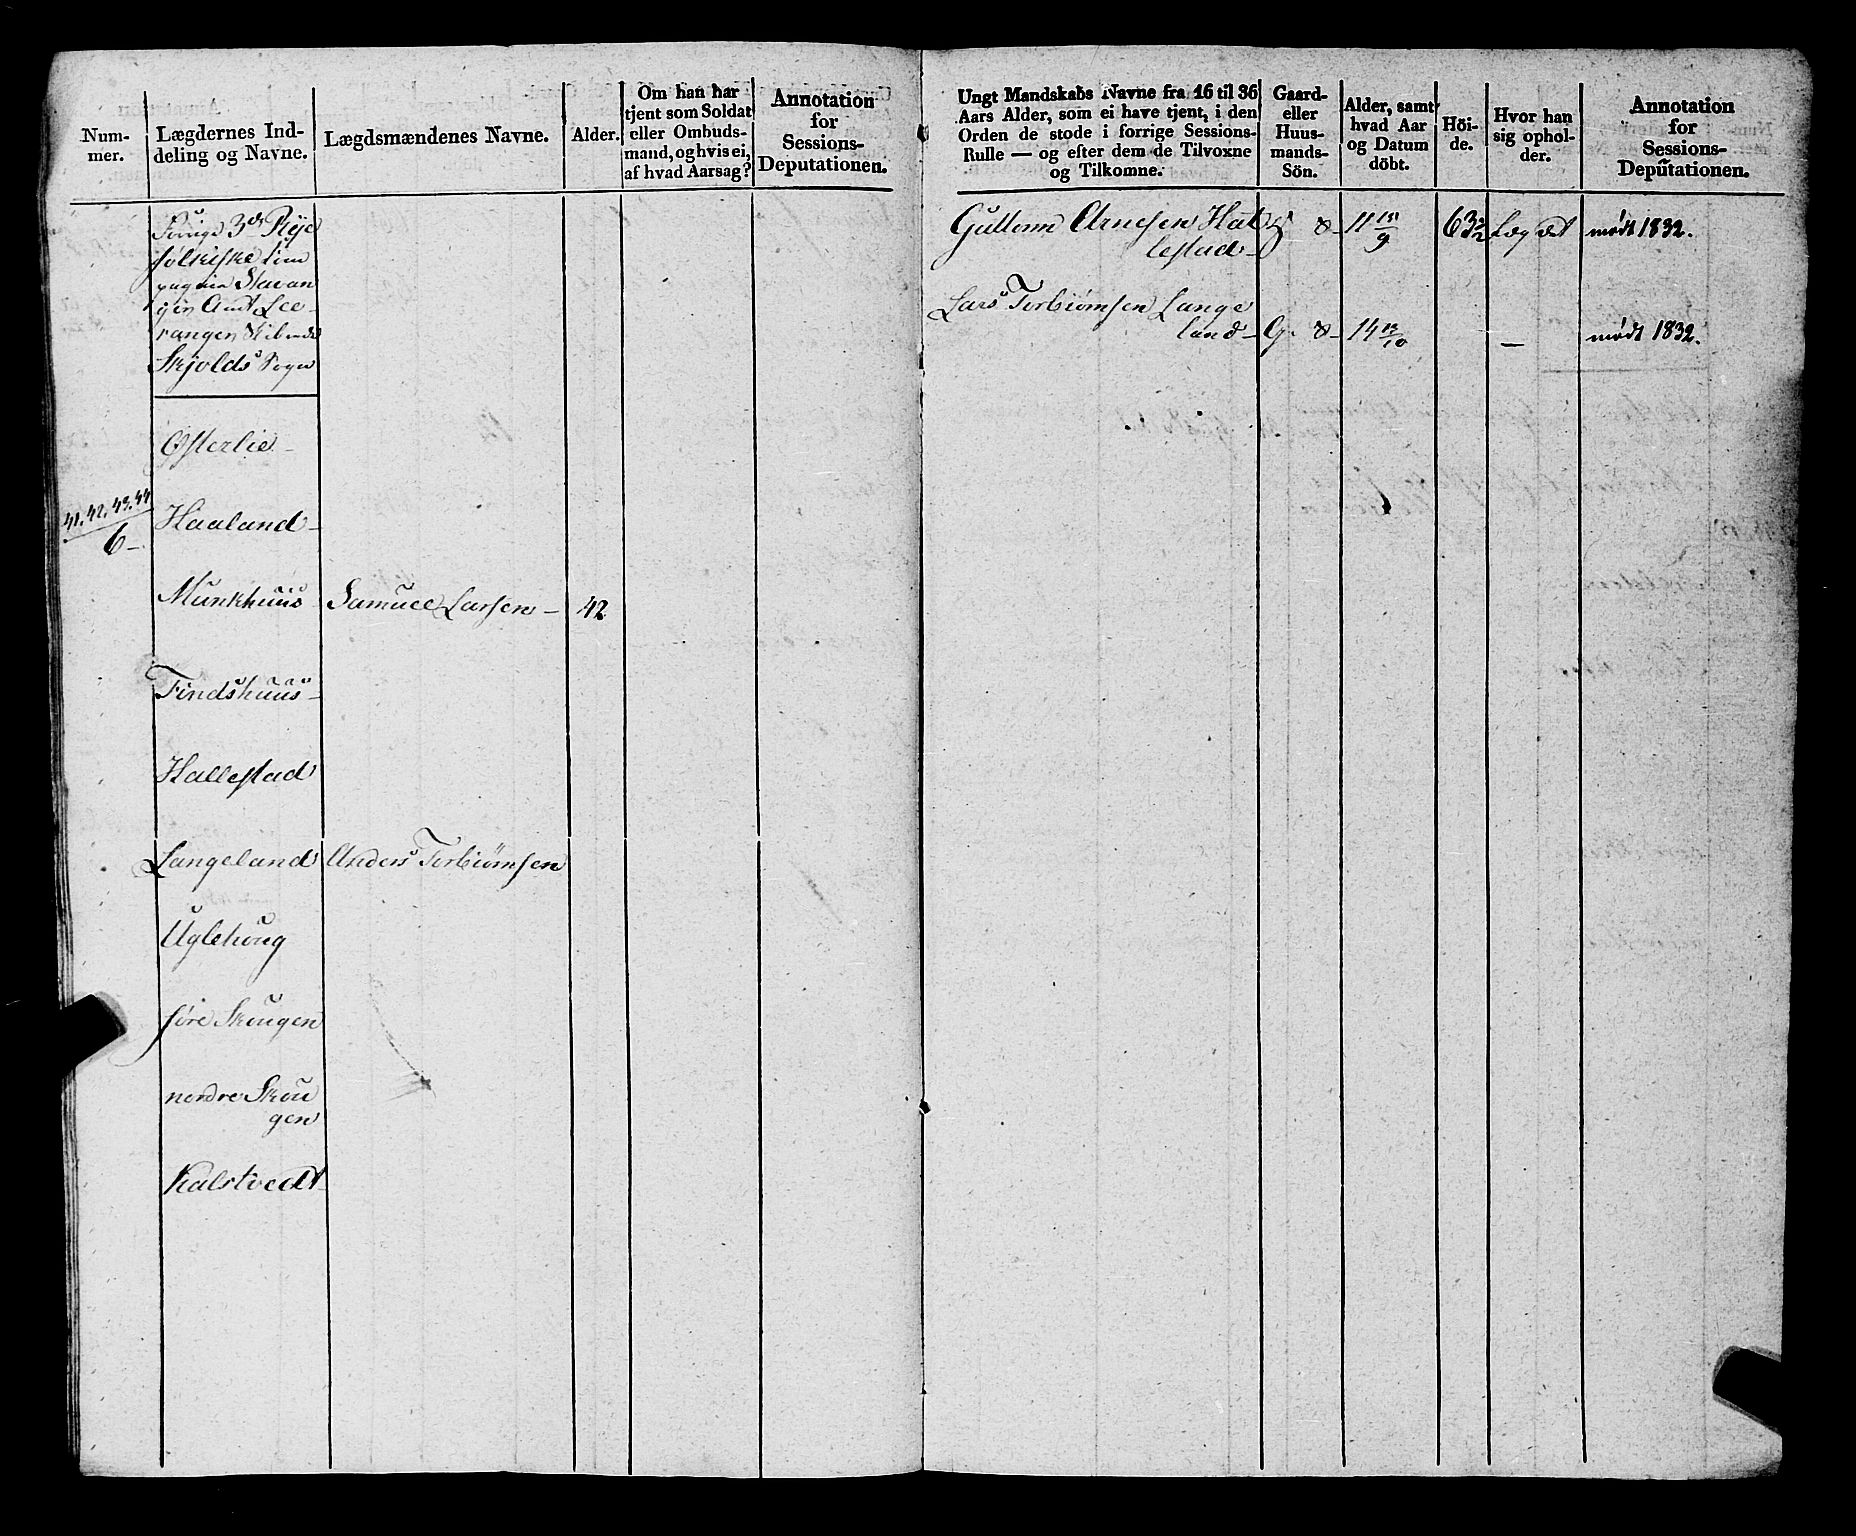 Num-
mer.
Lægdernes Ind-
deling og Navne.
Lægdsmændenes Navne.
Alder.
Om han har
tjent som Soldat
eller Ombuds-
mand, og hvis ei,
af hvad Aarsag?
Annotation
for
Sessions-
Deputationen.
3de Rye
fylkiske Com
pagnie Stavan
ger Amt
Skibrede
Skjolds Sogn
Østerlie
41. 42. 43. 44
6
Haaland
Munkhuus Samuel Larsen 42
Findshuus
Hallestad
Langeland Anders Torbiørnsen
Uglehoug
søre Skougen
nordre Skou
gen
Kalstvedt
Ungt Mandskabs Navne fra 16 til 36
Aars Alder, som ei have tjent, i den
Orden de stode i forrige Sessions-
Rulle — og efter dem de Tilvoxne
og Tilkomne.
Gaard-
eller
Huus-
mands-
Sön.
Alder, samt
hvad Aar
og Datum
döbt.
Höi-
de.
Hvor han
sig ophol-
der.
Annotation
for
Sessions-
Deputationen.
Guttorm Arnesen Hal
lestad 11 15/9 63 Lægdet mødt 1832.
Lars Torbiørnsen Lange
land G. 14 — mødt 1832.